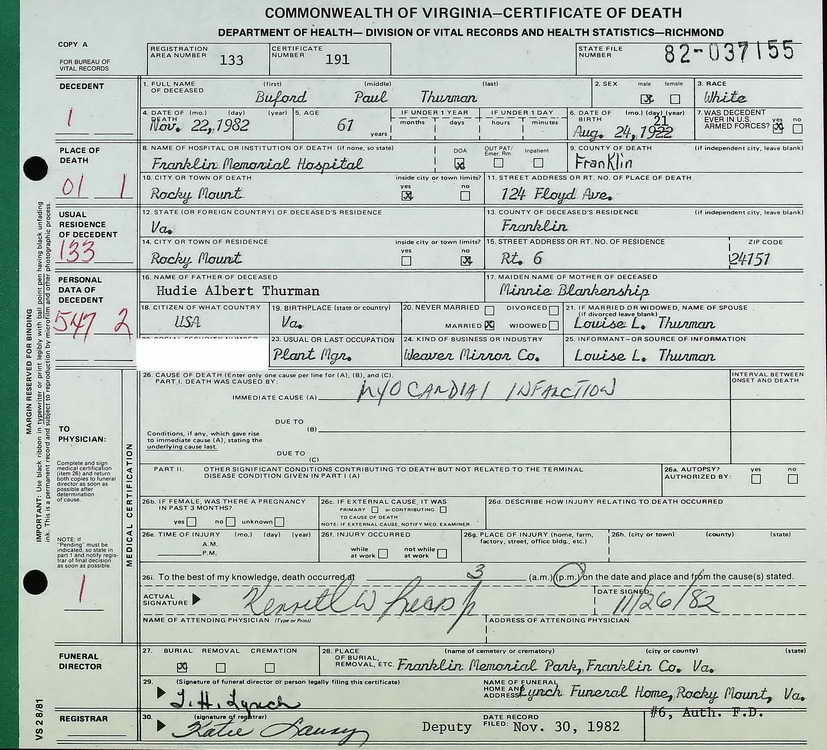 COMMONWEALTH OF VIRGINIA—CERTIFICATE OF DEATH
DEPARTMENT OF HEALTH— DIVISION OF VITAL RECORDS AND HEALTH STATISTICS—RICHMOND
COPY A
FOR BUREAU OF VITAL RECORDS
REGISTRATION AREA NUMBER 133
CERTIFICATE NUMBER 191
STATE FILE NUMBER 82-037155
DECEDENT
1
1. FULL NAME OF DECEASED (first) (middle) (last)
Buford Paul Thurman
2. SEX male female
3. RACE
White
4. DATE OF DEATH (mo.) (day) (year)
Nov. 22,1982
5. AGE
61 years
IF UNDER 1 YEAR
months days
IF UNDER 1 DAY
hours minutes
6. DATE OF BIRTH (mo.) (day) (year)
21
Aug. 24,1922
7. WAS DECEDENT EVER IN U.S. ARMED FORCES? yes no
PLACE OF DEATH
01 1
8. NAME OF HOSPITAL OR INSTITUTION OF DEATH (if none, so state)
Franklin Memorial Hospital
DOA OUT PAT/ Emer. Rm Inpatient
9. COUNTY OF DEATH (if independent city, leave blank)
Franklin
10. CITY OR TOWN OF DEATH
Rocky Mount
inside city or town limits?
yes no
11. STREET ADDRESS OR RT. NO. OF PLACE OF DEATH
124 Floyd Ave.
USUAL RESIDENCE OF DECEDENT
133
12. STATE (OR FOREIGN COUNTRY) OF DECEASED'S RESIDENCE
Va.
13. COUNTY OF DECEASED'S RESIDENCE (if independent city, leave blank)
Franklin
14. CITY OR TOWN OF RESIDENCE
Rocky Mount
inside city or town limits?
yes no
15. STREET ADDRESS OR RT. NO. OF RESIDENCE
Rt. 6
ZIP CODE
24151
PERSONAL DATA OF DECEDENT
547 2
16. NAME OF FATHER OF DECEASED
Hudie Albert Thurman
17. MAIDEN NAME OF MOTHER OF DECEASED
Minnie Blankenship
18. CITIZEN OF WHAT COUNTRY
USA
19. BIRTHPLACE (state or country)
Va.
20. NEVER MARRIED DIVORCED
MARRIED WIDOWED
21. IF MARRIED OR WIDOWED, NAME OF SPOUSE
(if divorced leave blank)
Louise L. Thurman
23. USUAL OR LAST OCCUPATION
Plant Mgr.
24. KIND OF BUSINESS OR INDUSTRY
Weaver Mirror Co.
25. INFORMANT—OR SOURCE OF INFORMATION
Louise L. Thurman
MARGIN RESERVED FOR BINDING
TO PHYSICIAN:
Complete and sign medical certification (item 26) and return both copies to funeral director as soon as possible after determination of cause.
NOTE: If "Pending" must be indicated, so state in part 1 and notify registrar of final decision as soon as possible.
1
MEDICAL CERTIFICATION
26. CAUSE OF DEATH (Enter only one cause per line for (A), (B), and (C).
PART I. DEATH WAS CAUSED BY:
IMMEDIATE CAUSE (A) MYOCARDIAL INFARCTION
INTERVAL BETWEEN ONSET AND DEATH
DUE TO
(B)
Conditions, if any, which gave rise to immediate cause (A), stating the underlying cause last.
DUE TO
(C)
PART II. OTHER SIGNIFICANT CONDITIONS CONTRIBUTING TO DEATH BUT NOT RELATED TO THE TERMINAL
DISEASE CONDITION GIVEN IN PART I (A)
26a. AUTOPSY?
AUTHORIZED BY: yes no
26b. IF FEMALE, WAS THERE A PREGNANCY IN PAST 3 MONTHS?
yes no unknown
26c. IF EXTERNAL CAUSE, IT WAS
PRIMARY or CONTRIBUTING
TO CAUSE OF DEATH
NOTE: IF EXTERNAL CAUSE, NOTIFY MED. EXAMINER
26d. DESCRIBE HOW INJURY RELATING TO DEATH OCCURRED
26e. TIME OF INJURY (mo.) (day) (year)
A.M.
P.M.
26f. INJURY OCCURRED
while at work not while at work
26g. PLACE OF INJURY (home, farm, factory, street, office bldg., etc.)
26h. (city or town) (county) (state)
26i. To the best of my knowledge, death occurred at 3 (a.m.) (p.m.) on the date and place and from the cause(s) stated.
ACTUAL SIGNATURE
DATE SIGNED
11/26/82
NAME OF ATTENDING PHYSICIAN (Type or Print)
ADDRESS OF ATTENDING PHYSICIAN
FUNERAL DIRECTOR
27. BURIAL REMOVAL CREMATION
28. PLACE OF BURIAL, REMOVAL, ETC. (name of cemetery or crematory) (city or county) (state)
Franklin Memorial Park, Franklin Co. Va.
29. (Signature of funeral director or person legally filing this certificate)
T. H. Lynch
NAME OF FUNERAL HOME AND ADDRESS
Lynch Funeral Home, Rocky Mount, Va.
#6, Auth. F.D.
VS 2 8/81
REGISTRAR
30. (signature of registrar)
Katie
Deputy
DATE RECORD FILED: Nov. 30, 1982